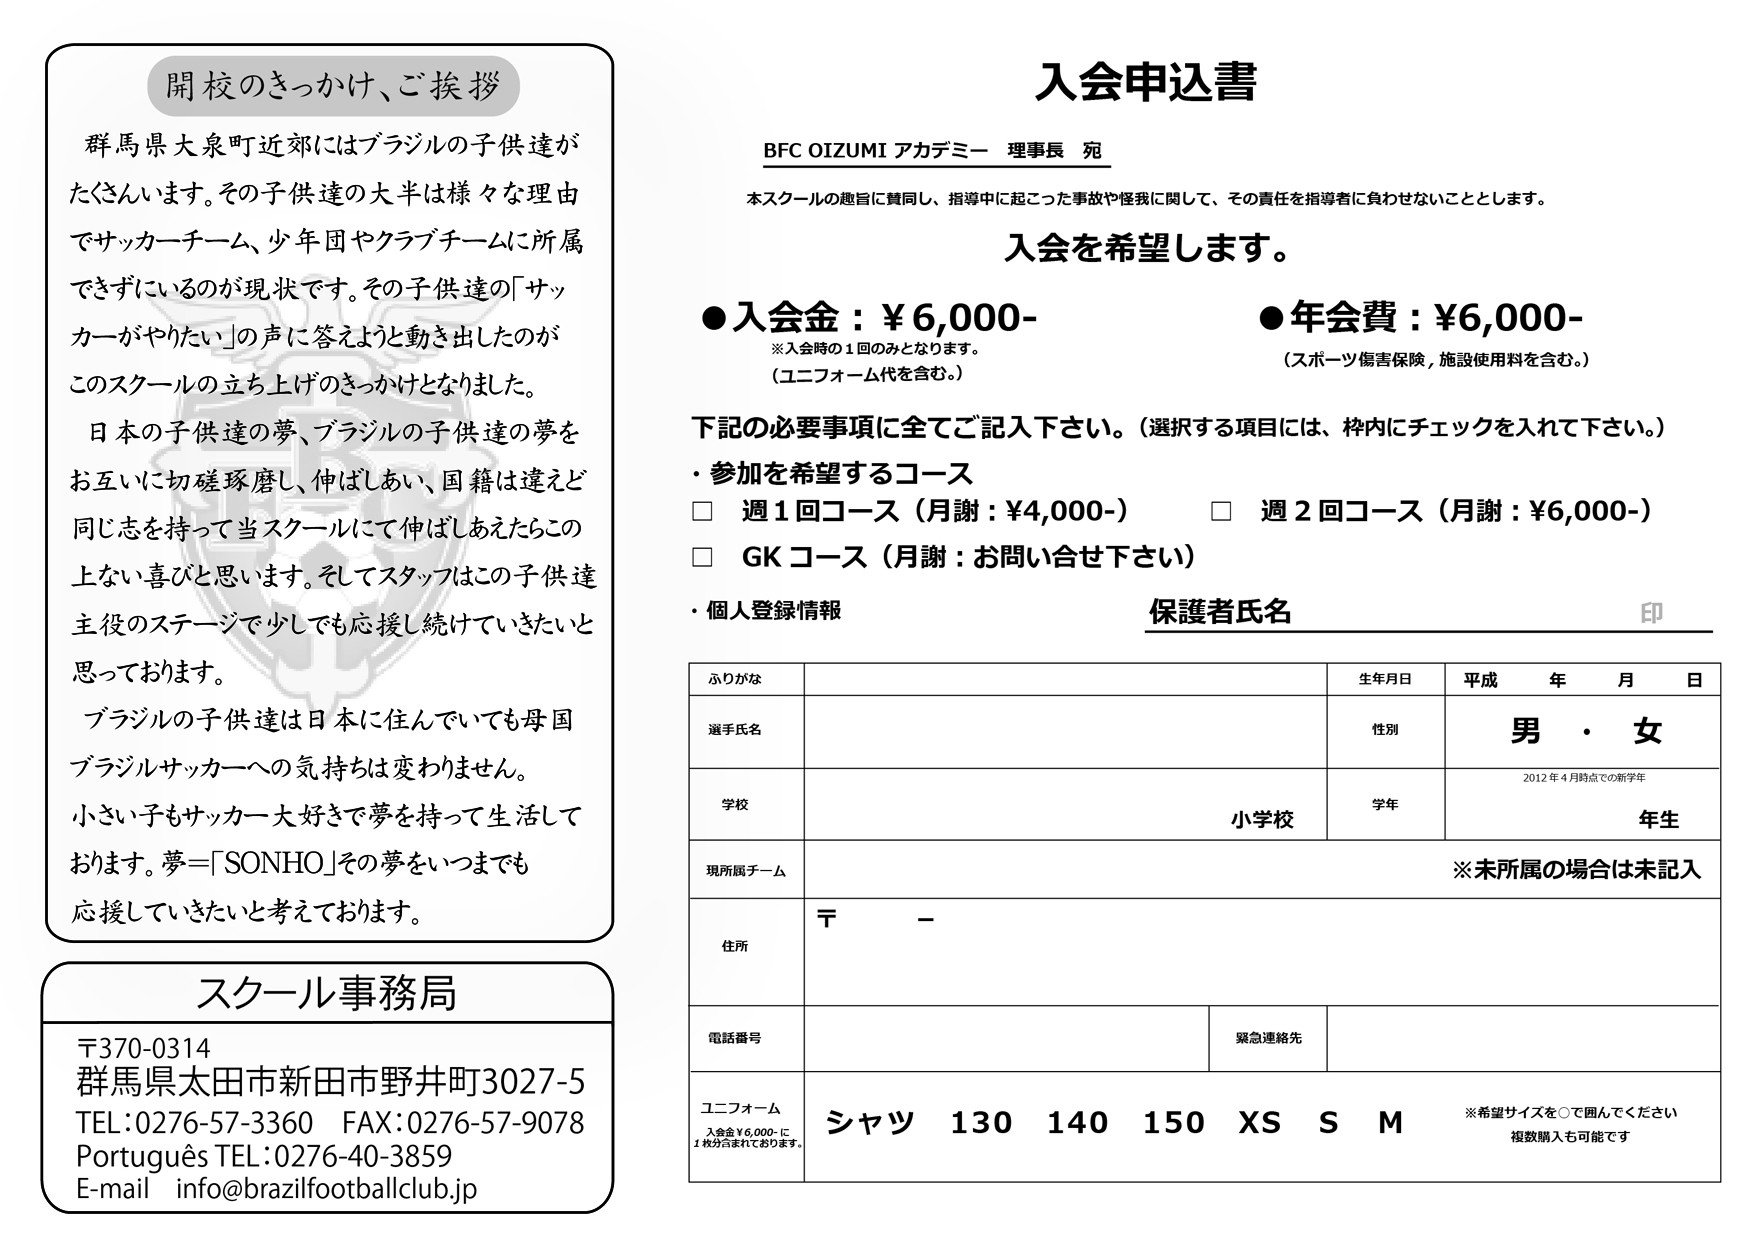 開校のきっかけ、ご挨拶
群馬県大泉町近郊にはブラジルの子供達が
たくさんいます。その子供達の大半は様々な理由
でサッカーチーム、少年団やクラブチームに所属
できずにいるのが現状です。その子供達の「サッ
カーがやりたい」の声に答えようと動き出したのが
このスクールの立ち上げのきっかけとなりました。
日本の子供達の夢、ブラジルの子供達の夢を
お互いに切磋琢磨し、伸ばしあい、国籍は違えど
同じ志を持って当スクールにて伸ばしあえたらこの
上ない喜びと思います。そしてスタッフはこの子供達
主役のステージで少しでも応援し続けていきたいと
思っております。
ブラジルの子供達は日本に住んでいても母国
ブラジルサッカーへの気持ちは変わりません。
小さい子もサッカー大好きで夢を持って生活して
おります。夢＝「SONHO」その夢をいつまでも
応援していきたいと考えております。
スクール事務局
〒370-0314
群馬県太田市新田市野井町3027-5
TEL：0276-57-3360　FAX：0276-57-9078
Português TEL：0276-40-3859
E-mail　info@brazilfootballclub.jp
入会申込書
BFC OIZUMI アカデミー　理事長　宛
本スクールの趣旨に賛同し、指導中に起こった事故や怪我に関して、その責任を指導者に負わせないこととします。
入会を希望します。
●入会金：￥6,000-　●年会費：¥6,000-
※入会時の１回のみとなります。
（ユニフォーム代を含む。）　（スポーツ傷害保険，施設使用料を含む。）
下記の必要事項に全てご記入下さい。（選択する項目には、枠内にチェックを入れて下さい。）
・参加を希望するコース
□　週１回コース（月謝：¥4,000-）　□　週２回コース（月謝：¥6,000-）
□　GK コース（月謝：お問い合せ下さい）
・個人登録情報　保護者氏名　印
ふりがな　生年月日　平成　年　月　日
選手氏名　性別　男　・　女
2012 年 4 月時点での新学年
学校　小学校　学年　年生
現所属チーム　※未所属の場合は未記入
〒　－
住所
電話番号　緊急連絡先
ユニフォーム
入会金¥6,000- に
１枚分含まれております。
シャツ　130　140　150　XS　S　M
※希望サイズを○で囲んでください
複数購入も可能です